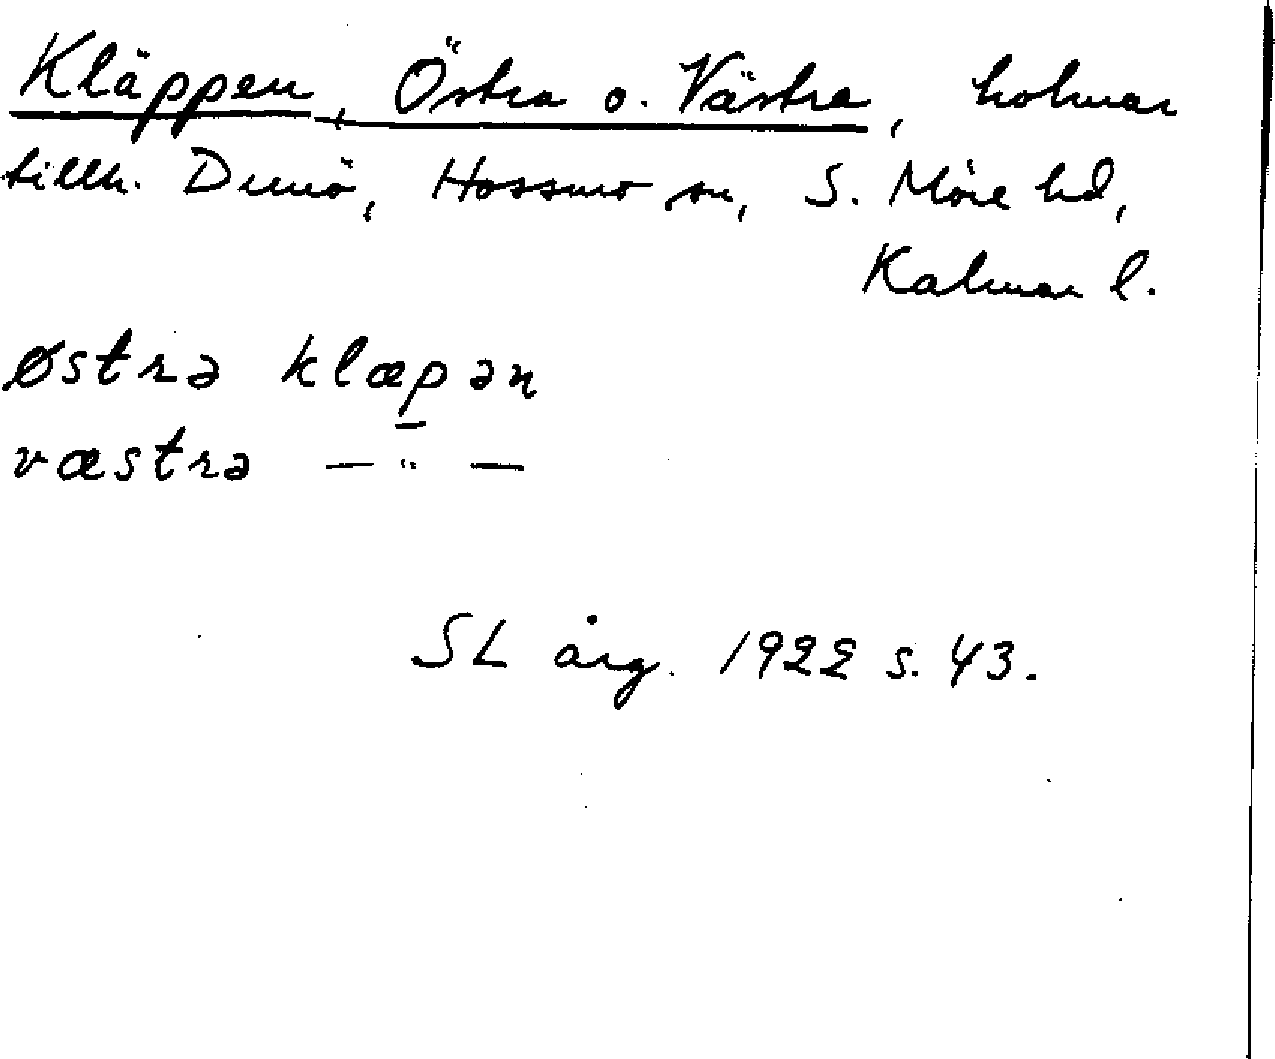 Kläppen, Östra o. Västra, holmar
tillh. Dunö, Hossmo sn, S. Möre hd,
Kalmar l.
østrə klæp̲ən
væstrə —"—
SL årg. 1922 s. 43.